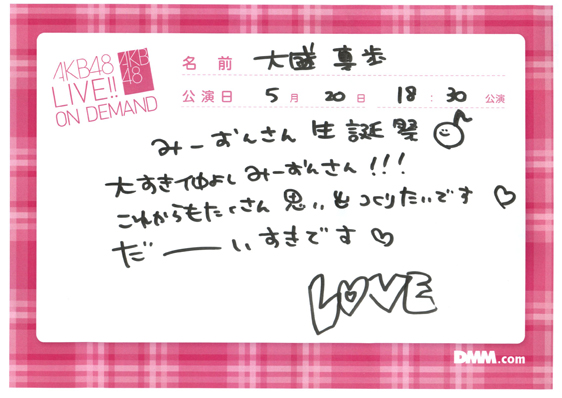 AKB48
LIVE!!
ON DEMAND
AKB
48
名前 大盛 真歩
公演日 5月20日 18:30 公演
みーおんさん 生誕祭
大すき仲よし みーおんさん!!!
これからもたくさん 思い出 つくりたいです♡
だーーいすきです♡
LOVE
DMM.com